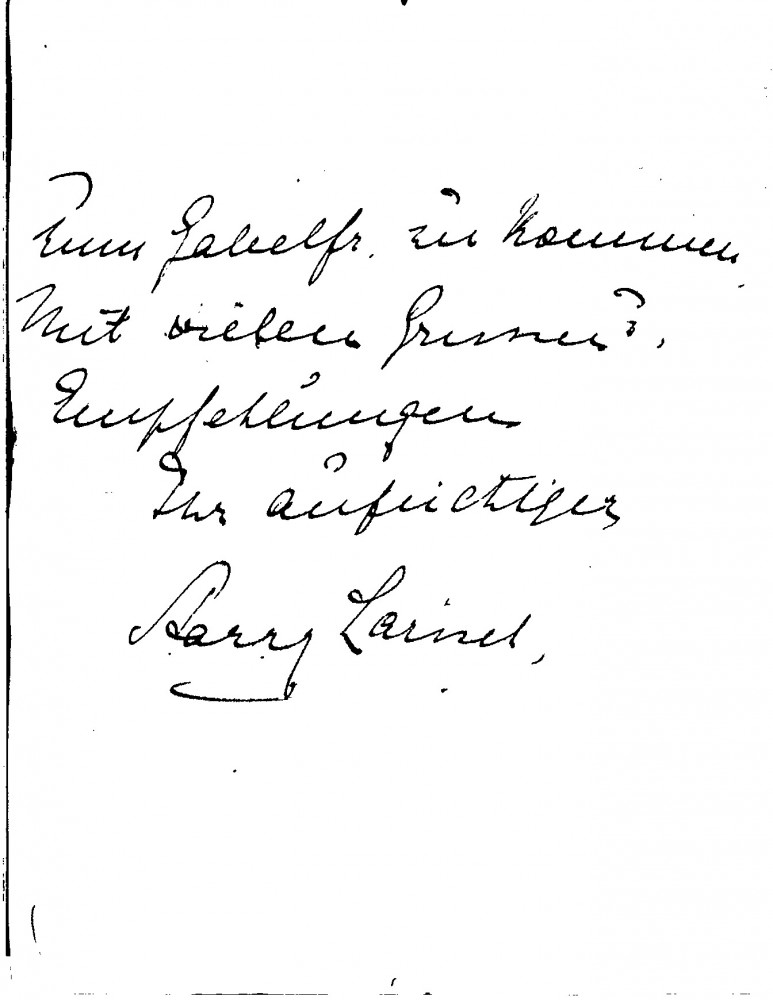 zum Gabelfr. zu kommen
Mit vielen Grüssen u.
Empfehlungen
Ihr aufrichtiger
Harry